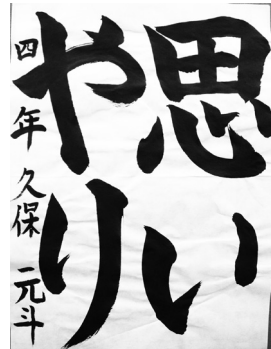 思い
やり
四年 久保 元斗